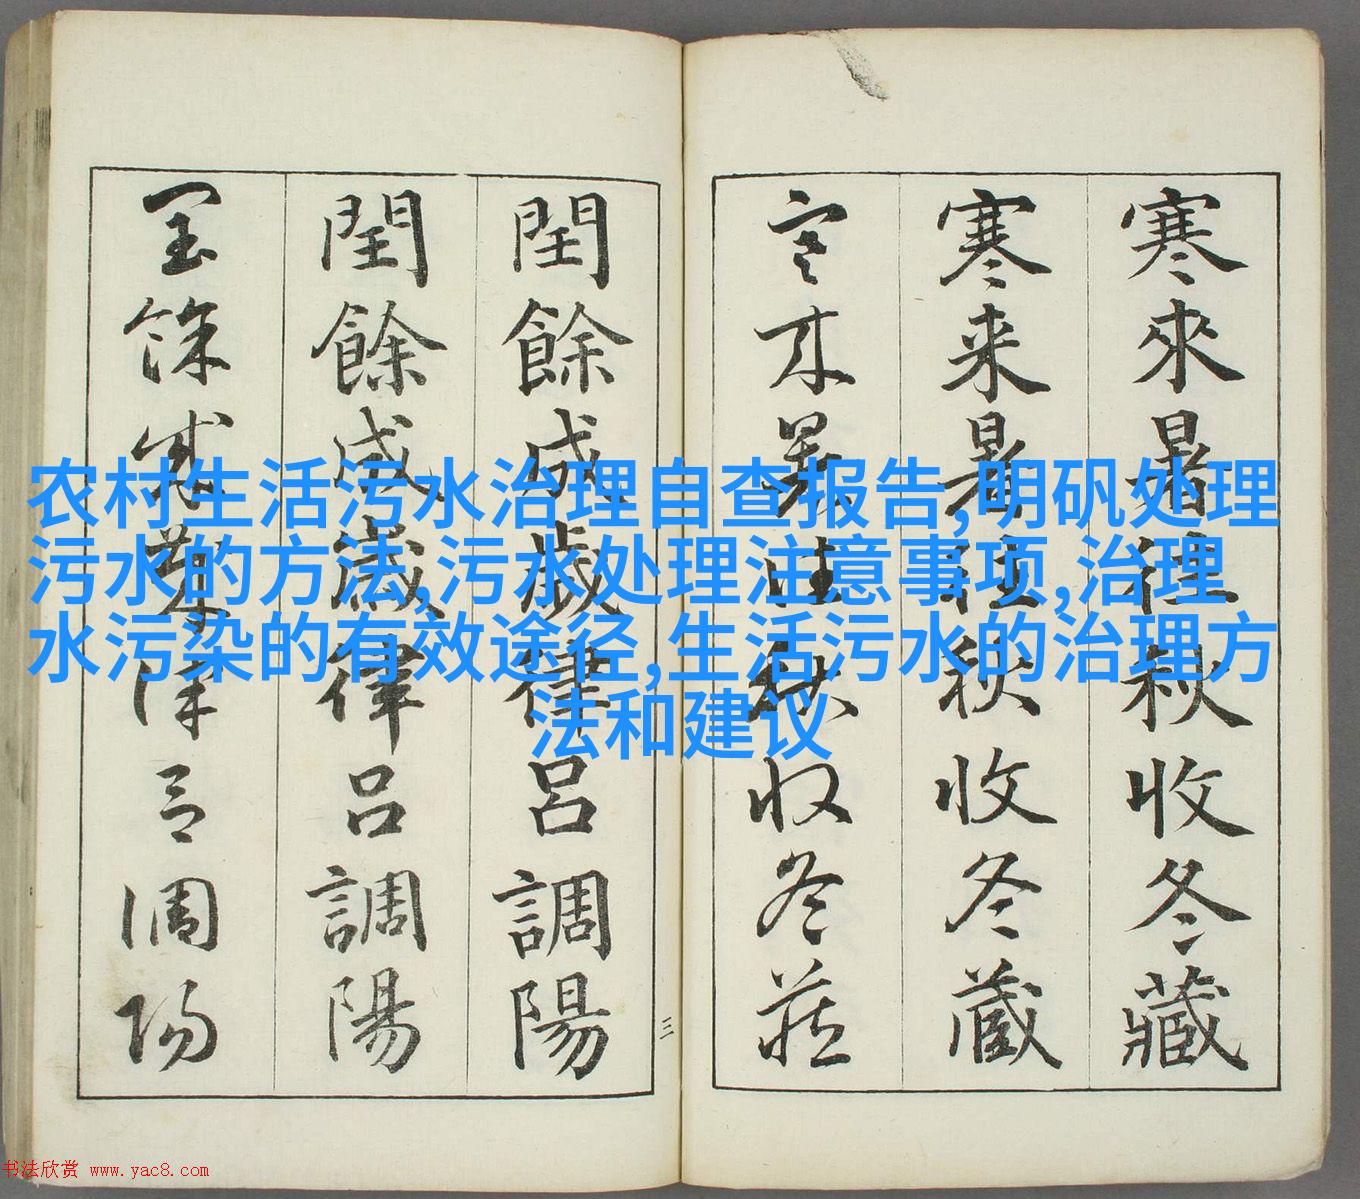 寒來暑往秋收冬藏
寒来暑往秋收冬蔵
寒来暑往秋收冬藏
閏餘成歲律呂調陽
閏餘成歲律呂調陽
閏餘成歲律呂調陽
三
农村生活污水治理自查报告,明矾处理
污水的方法,污水处理注意事项,治理
水污染的有效途径,生活污水的治理方
法和建议
书法欣赏 www.yac8.com